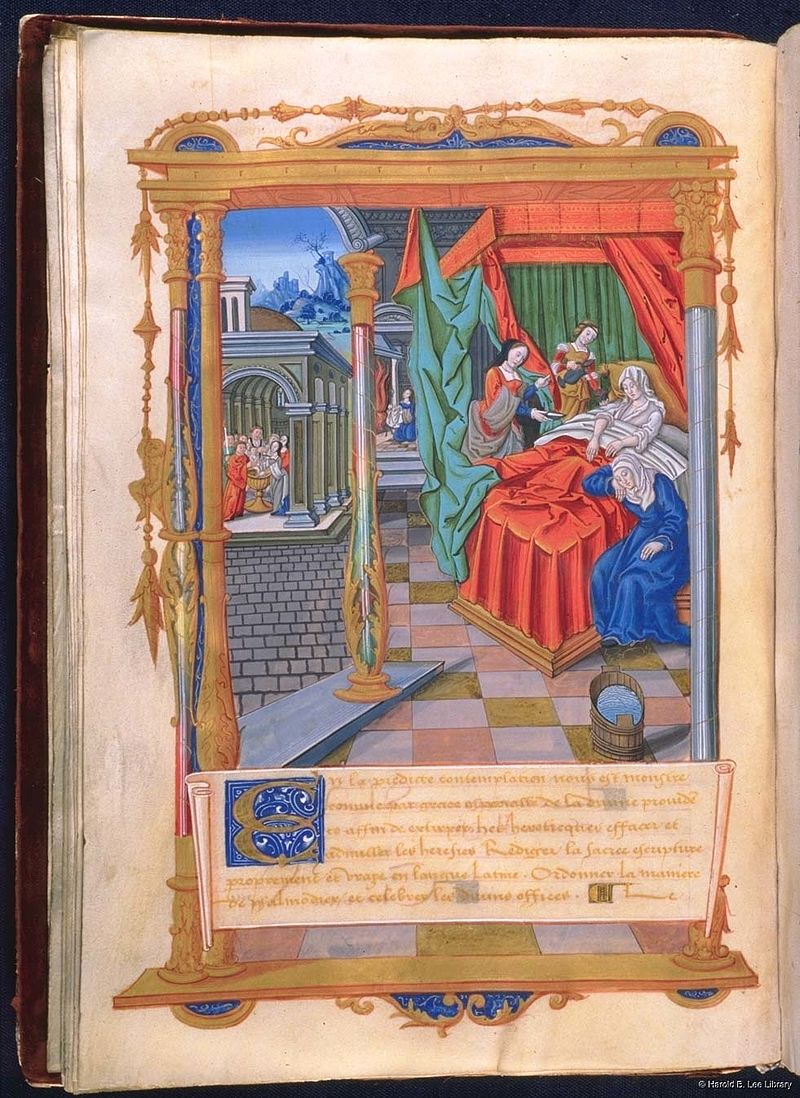 En la predicte contemplation nous est monstre
comme par grace especialle de la divine provide
ce affin de extirper. hebr hereticques effacer et
adnuller les heresies Rediger la sacree escripture
proprement et vraye en langue Latine. Ordonner la maniere
de psalmodier, et celebrer les divins offices.
© Harold B. Lee Library